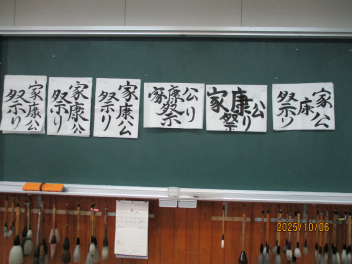 家康公
祭り
家康公
祭り
家康公
祭り
家康公
祭り
家康公
祭り
家康公
祭り
2025/10/06